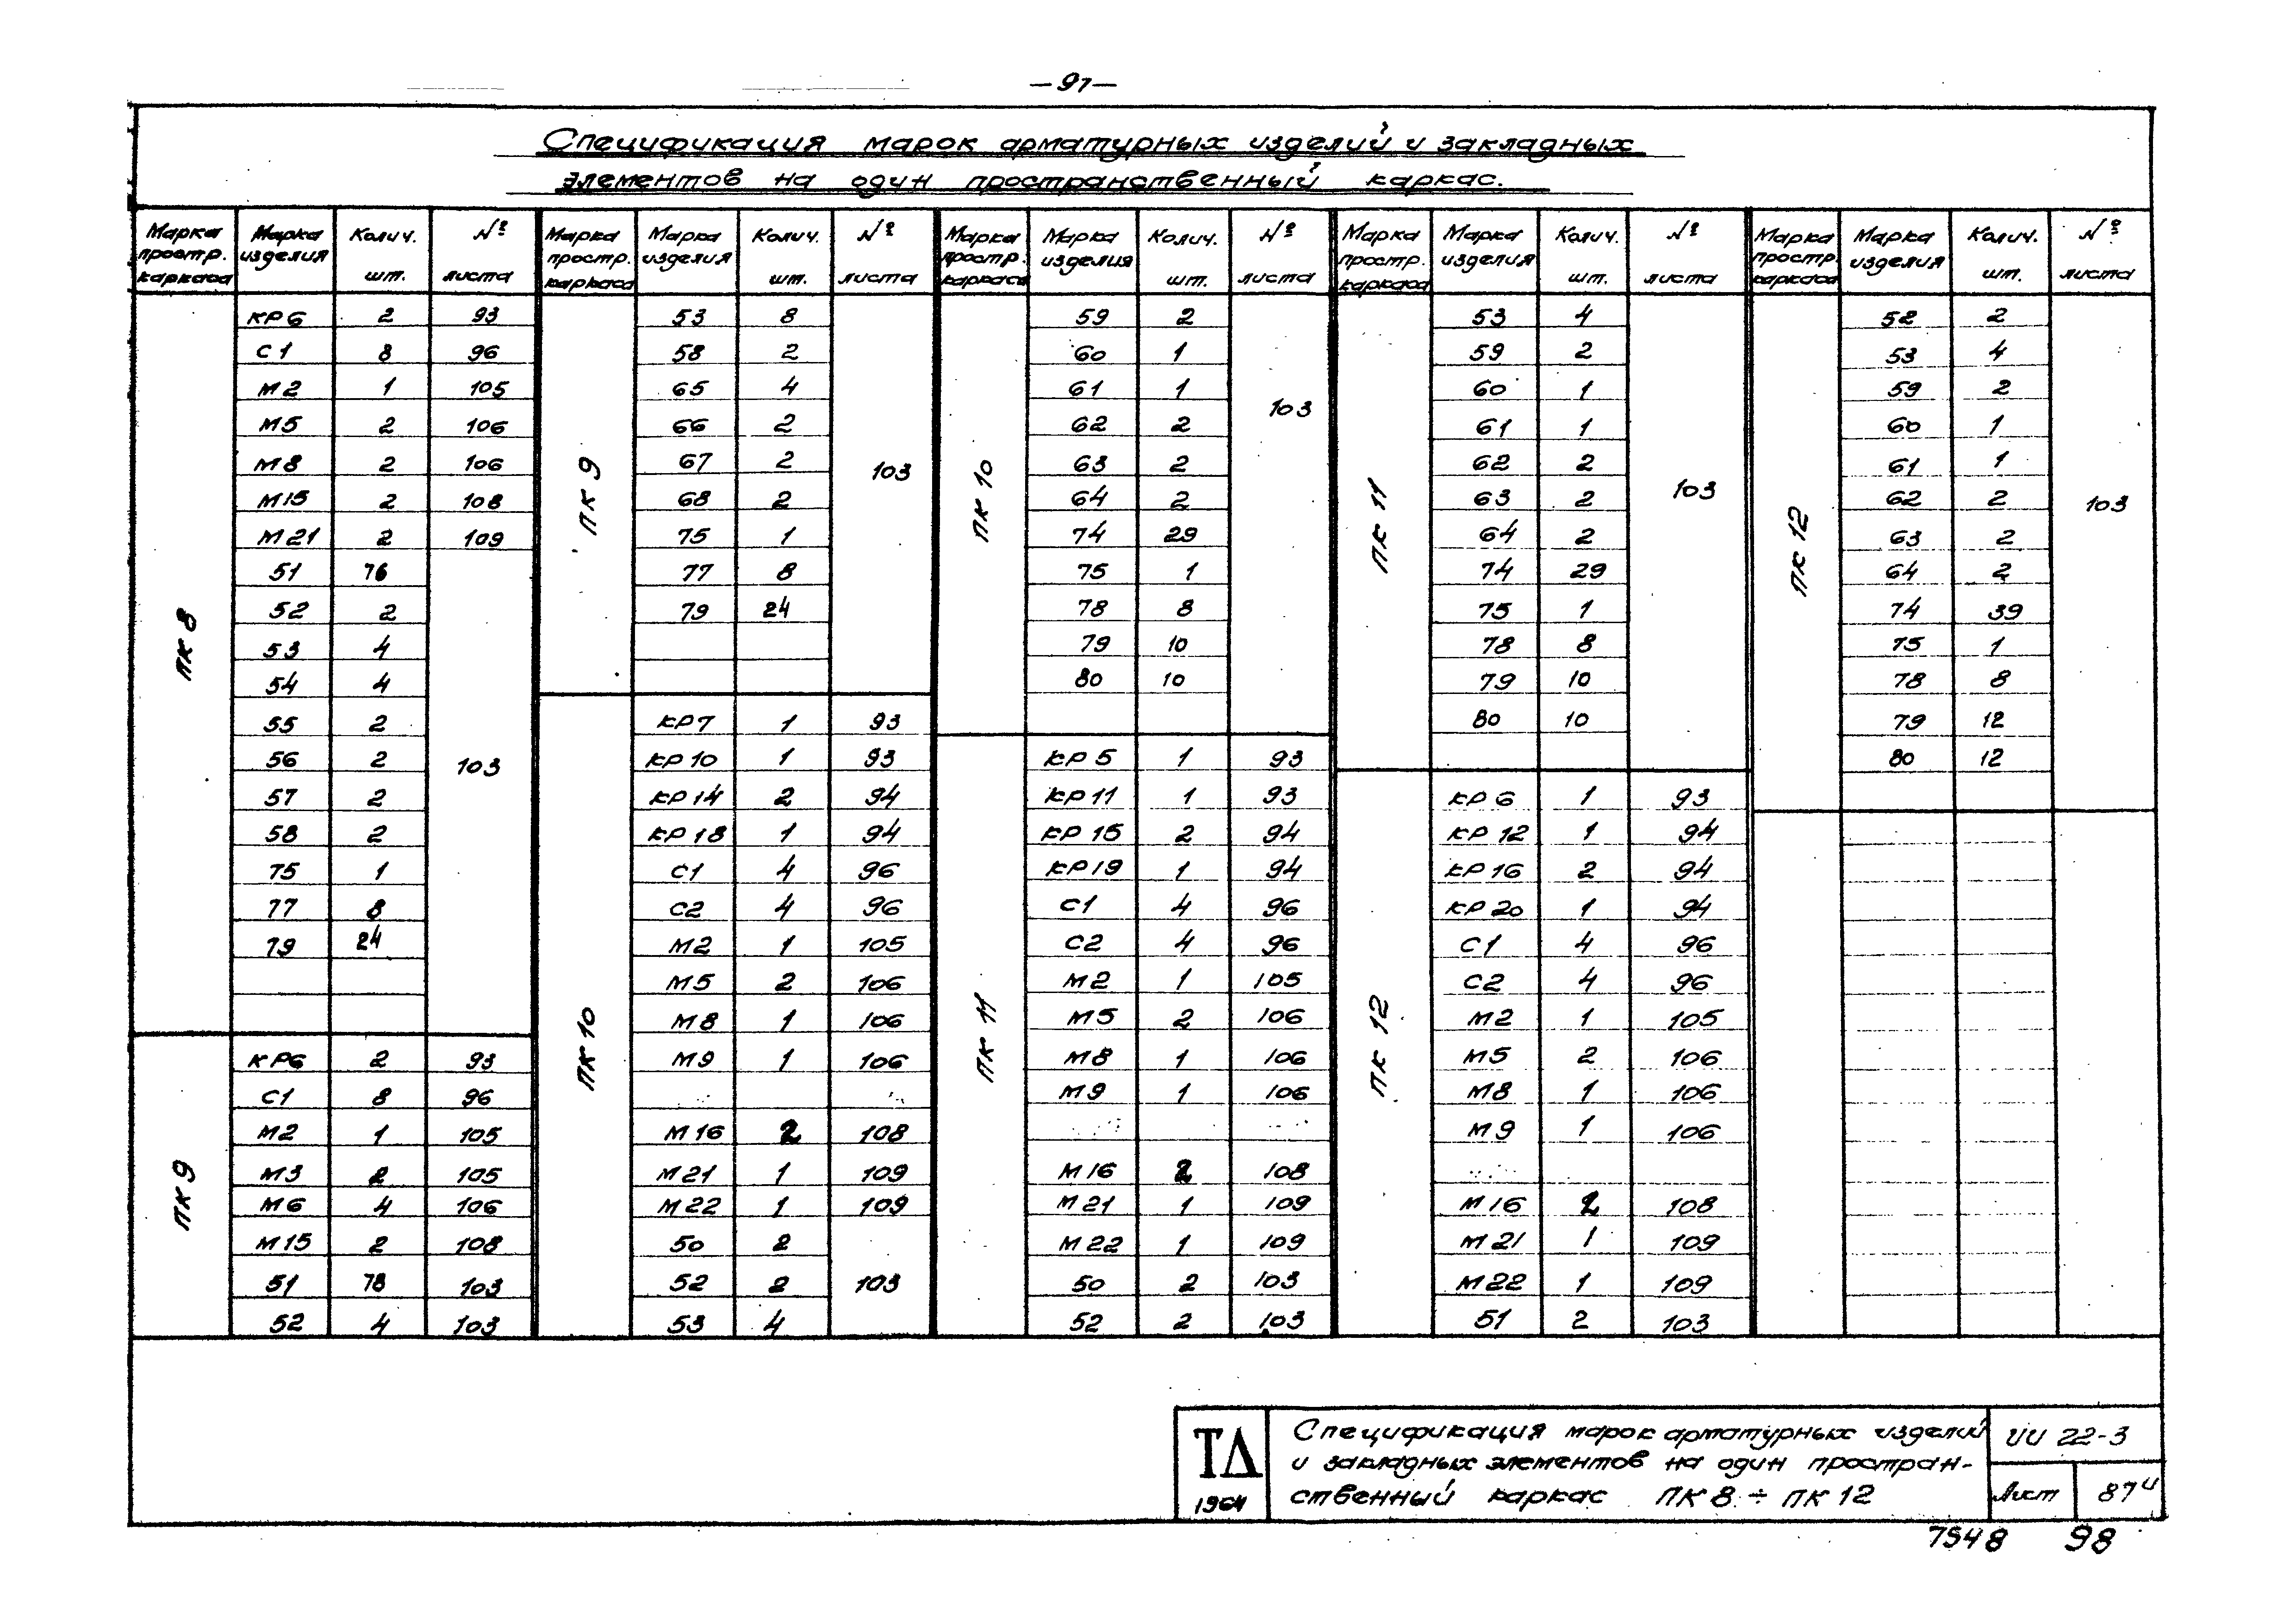 — 97 —
Спецификация марок арматурных изделий и закладных
элементов на один пространственный каркас.
Марка простр. каркаса | Марка изделия | Колич. шт. | № листа
ПК 8
КР6 2 93
С1 8 96
М2 1 105
М5 2 106
М8 2 106
М15 2 108
М21 2 109
51 76 103
52 2
53 4
54 4
55 2
56 2
57 2
58 2
75 1
77 8
79 24
ПК 9
КР6 2 93
С1 8 96
М2 1 105
М3 2 105
М6 4 106
М15 2 108
51 78 103
52 4 103
Марка простр. каркаса | Марка изделия | Колич. шт. | № листа
ПК 9
53 8 103
58 2
65 4
66 2
67 2
68 2
75 1
77 8
79 24
ПК 10
КР7 1 93
КР10 1 93
КР14 2 94
КР18 1 94
С1 4 96
С2 4 96
М2 1 105
М5 2 106
М8 1 106
М9 1 106
М16 2 108
М21 1 109
М22 1 109
50 2 103
52 2
53 4
Марка простр. каркаса | Марка изделия | Колич. шт. | № листа
ПК 10
59 2 103
60 1
61 1
62 2
63 2
64 2
74 29
75 1
78 8
79 10
80 10
ПК 11
КР5 1 93
КР11 1 93
КР15 2 94
КР19 1 94
С1 4 96
С2 4 96
М2 1 105
М5 2 106
М8 1 106
М9 1 106
М16 2 108
М21 1 109
М22 1 109
50 2 103
52 2 103
Марка простр. каркаса | Марка изделия | Колич. шт. | № листа
ПК 11
53 4 103
59 2
60 1
61 1
62 2
63 2
64 2
74 29
75 1
78 8
79 10
80 10
ПК 12
КР6 1 93
КР12 1 94
КР16 2 94
КР20 1 94
С1 4 96
С2 4 96
М2 1 105
М5 2 106
М8 1 106
М9 1 106
М16 2 108
М21 1 109
М22 1 109
51 2 103
Марка простр. каркаса | Марка изделия | Колич. шт. | № листа
ПК 12
52 2 103
53 4
59 2
60 1
61 1
62 2
63 2
64 2
74 39
75 1
78 8
79 12
80 12
ТД
1964
Спецификация марок арматурных изделий
и закладных элементов на один простран-
ственный каркас ПК 8 ÷ ПК 12
ИИ 22-3
Лист 87и
7548 98